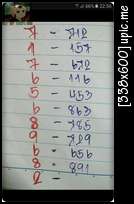 7 - 712
1 - 157
7 - 672
6 - 116
5 - 453
6 - 863
8 - 785
9 - 729
6 - 656
8 - 891
2 -
[338x600] upic.me